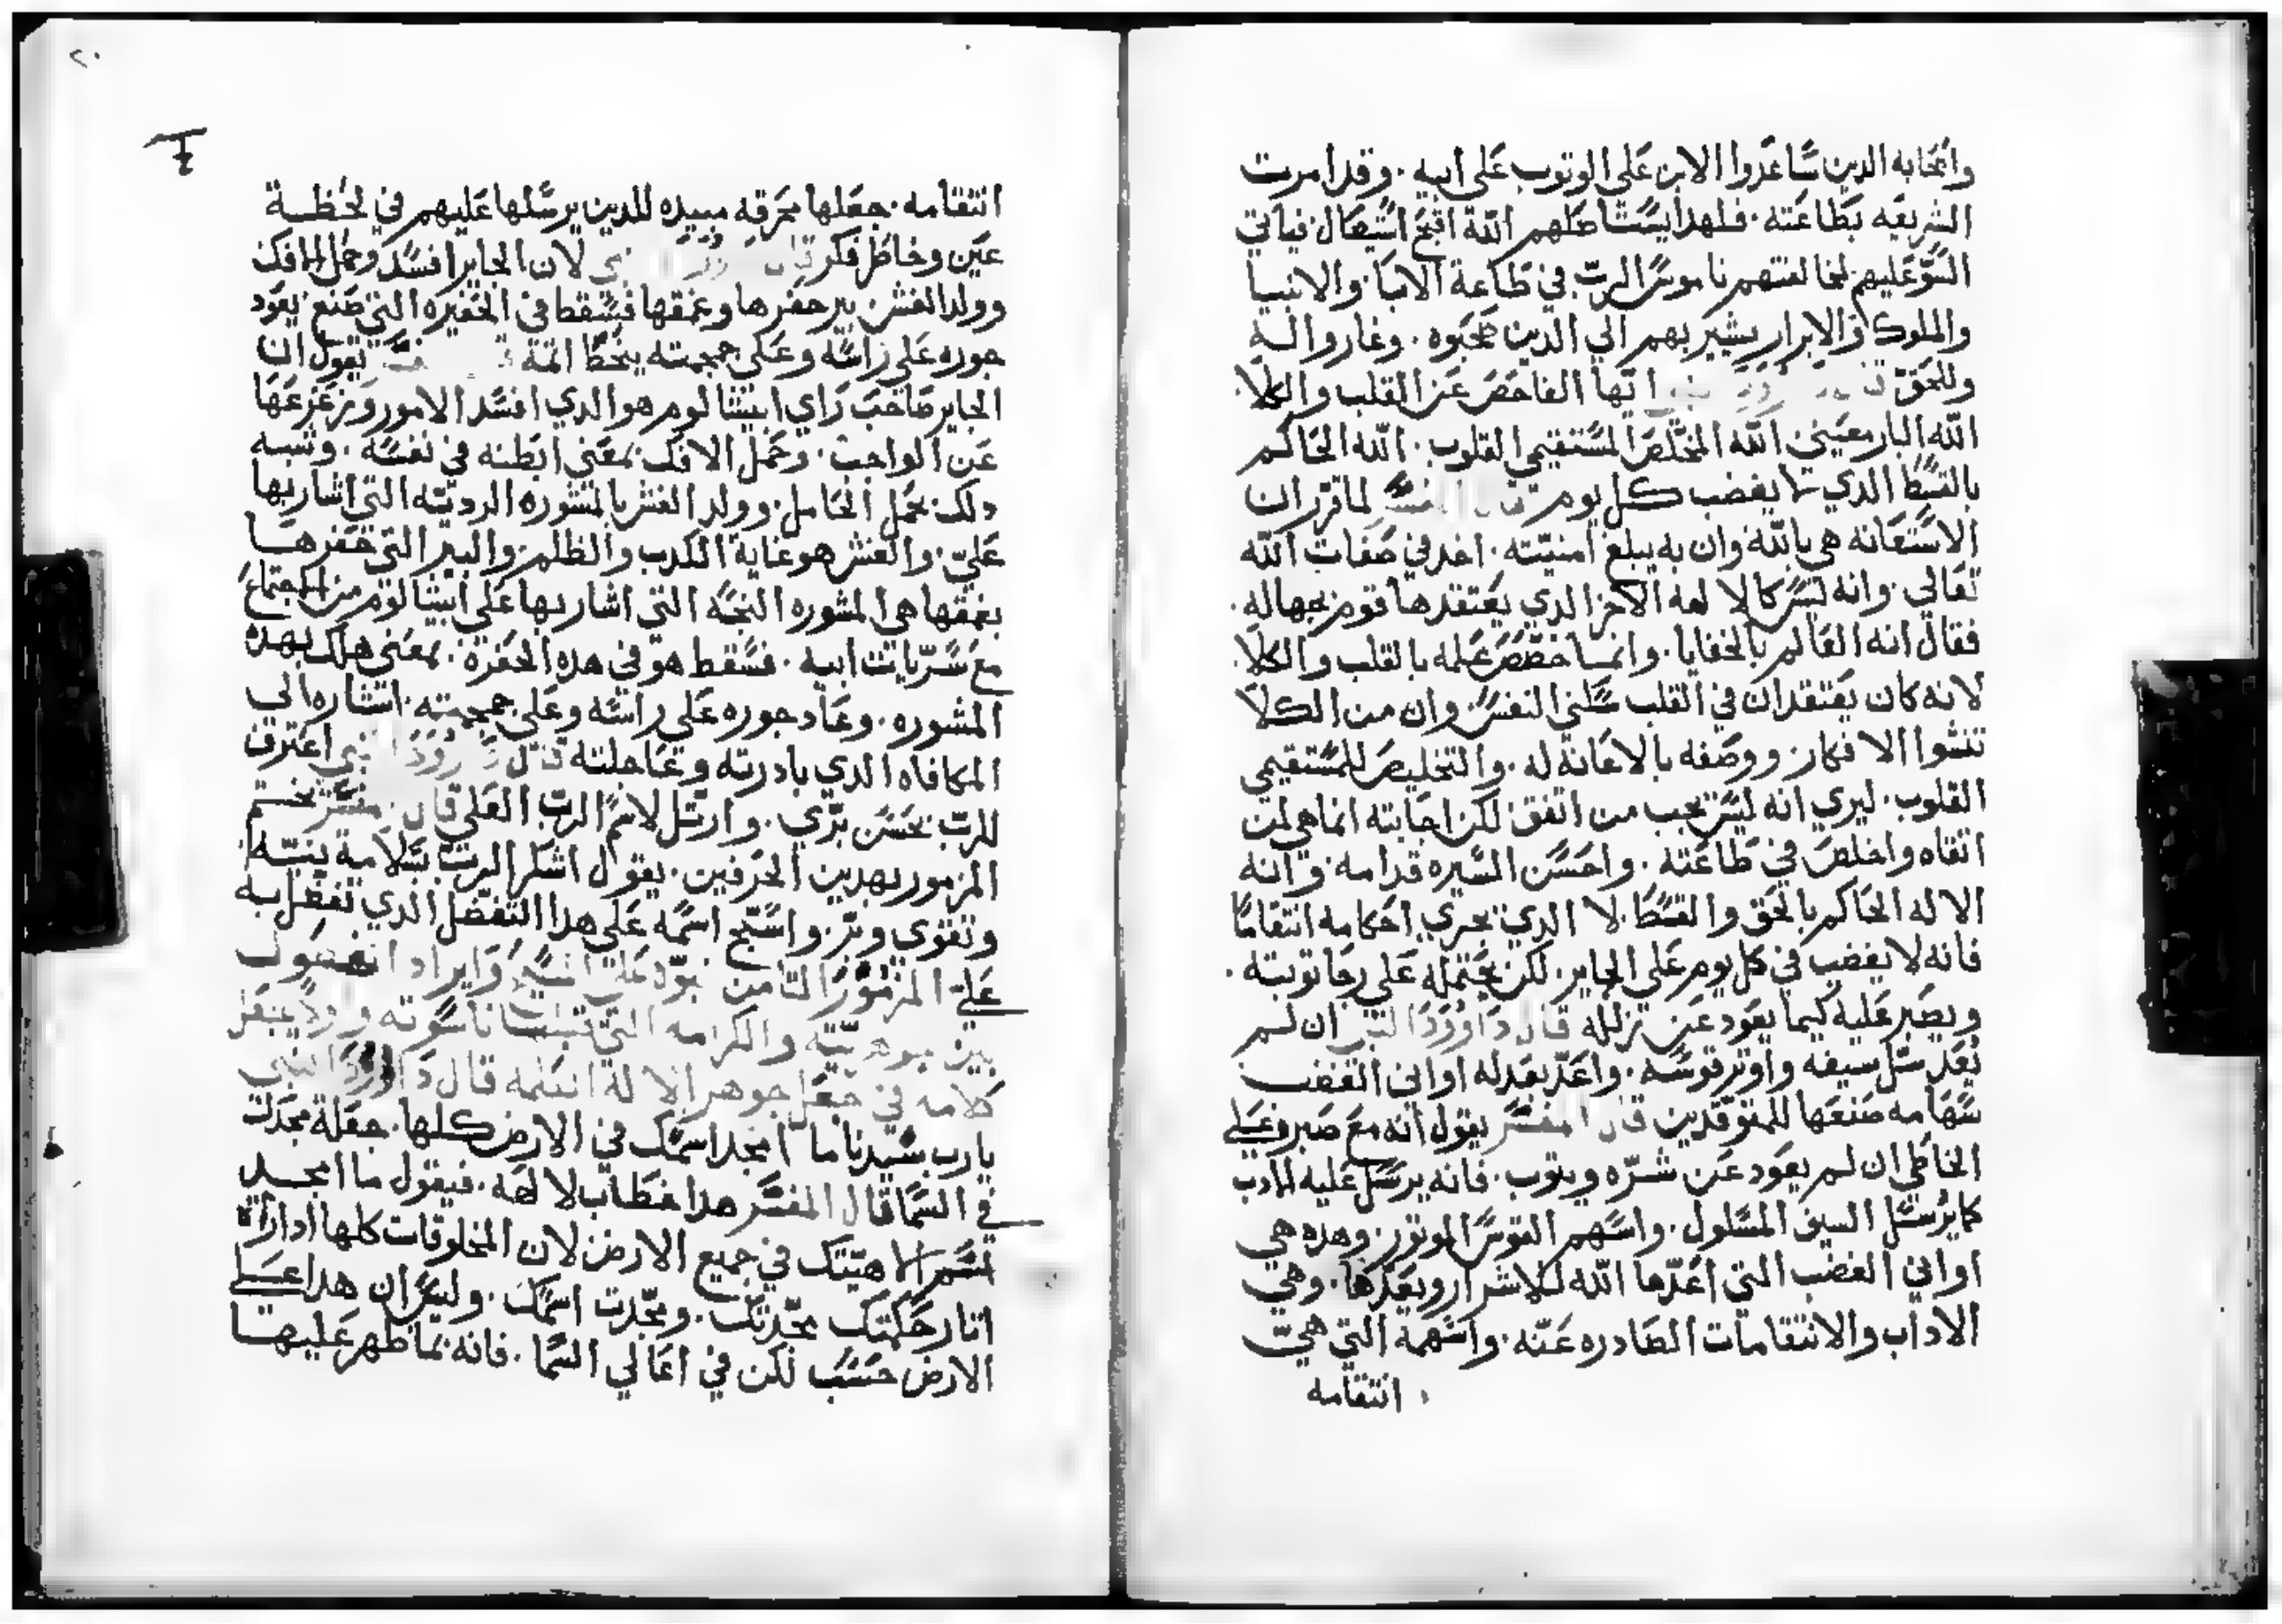 واصحابه الدين ساعدوا الابن على الوتوب على ابيه . وقد امرت
الشريعه بطاعته . فلهدا يستاصلهم الله اقبح استيصال فياتي
السو عليهم لمخالفتهم ناموس الرب في طاعة الابا والانبيا
والملوك والابرار يشير بهم الي الدين صحبوه . وغاروا له
وللحق النبي ايها الفاحص عن القلب والكلا
الله البار معيني الله المخلص المستقيمي القلوب . الله الحاكم
بالقسط الدي لا يغضب كل يوم قال المفسر لما قرر ان
الاستعانه هي بالله وان به يبلغ امنيته . اخد في صفات الله
تعالي وانه ليس كالالهة الاخر الدي يعتقدها قوم بجهاله .
فقال انه العالم بالخفايا . وانما خصص علمه بالقلب والكلا
لانه كان يعتقد ان في القلب سكني النفس وان من الكلا
تنشوا الافكار ووصفه بالاعانة له . والتخليص للمستقيمي
القلوب . ليري انه ليس يجب من اتفق لكن اجابته انما هي لمن
اتقاه واخلص في طاعته . واحسن السيره قدامه وانه
الاله الحاكم بالحق والقسط لا الدي تجري احكامه انتقاما
فانه لا يغضب في كل يوم على الجاير . لكن يحتمله على رجا توبته .
ويصبر عليه كيما يعود عن زلله قال داوود النبي ان لم
يعد سل سيفه واوتر قوسه . واعد بعد له اواني الغضب
سهامه صنعها للمتوقدين قال المفسر يقول انه مع صبره على
الخاطي ان لم يعود عن شره ويتوب . فانه يرسل عليه الادب
كما يرسل السيف المسلول . واسهم القوس الموتور . وهده هي
اواني الغضب التي اعدها الله للاشرار ويعدها . وهي
الاداب والانتقامات الصادره عنه . واسهمة التي هي
انتقامه
٢٠
انتقامه . جعلها محرقه مبيده للدين يرسلها عليهم في لحظة
عين وخاطر فكر قال داوود النبي لان الجاير افسد وحمل الافك
وولد الغش بير حفرها وعمقها فيسقط في الحفيره التي صنع يعود
جوره على راسه وعلى جمجمته ينحط اتمة يقول ان
الجاير صاحب راي ابيشالوم هو الدي افسد الامور وزعزعها
عن الواجب . وحمل الافك بمعني ابطنه في نفسه . وشبه
دلك بحمل الحامل . وولد الغش بالمشوره الرديه التي اشار بها
علي . والغش هو غاية الكدب والظلم والبير التي حفرها
بعمقها هي المشوره النجسه التي اشار بها على ابيشالوم من الاجتماع
مع سريات ابيه . فسقط هو في هده الحفرة . بمعني هلك بهده
المشوره . وعاد جوره على راسه وعلى جمجمته . اشاره الي
المكافاه الدي بادرته وعاجلته قال داوود النبي اعترف
للرب بحسن بري . وارتل لاسم الرب العلي قال المفسر يختم
المزمور بهدين الحرفين . يقول اشكر الرب بسلامة بنيه
وتقوي وبر . واسبح اسمه على هدا التفضل الدي تفضل به
علي المزمور التامن نبوه على المسيح وايراد الفصول
بين جوهريته والكرامه التي تبلت ناسوته
كلامه في جعل جوهر الاله الكلمه قال داوود النبي
يارب سيدنا ما امجد اسمك في الارض كلها . جعلة مجدك
في السما قال المفسر هدا خطاب للالهة . فيقول ما امجد
لسم الاهيتك في جميع الارض لان المخلوقات كلها ادا رات
اتار حكمتك مجدتك . ومجدت اسمك . وليس ان هدا على
الارض حسب لكن في اعالي السما . فانه بما ظهر عليها